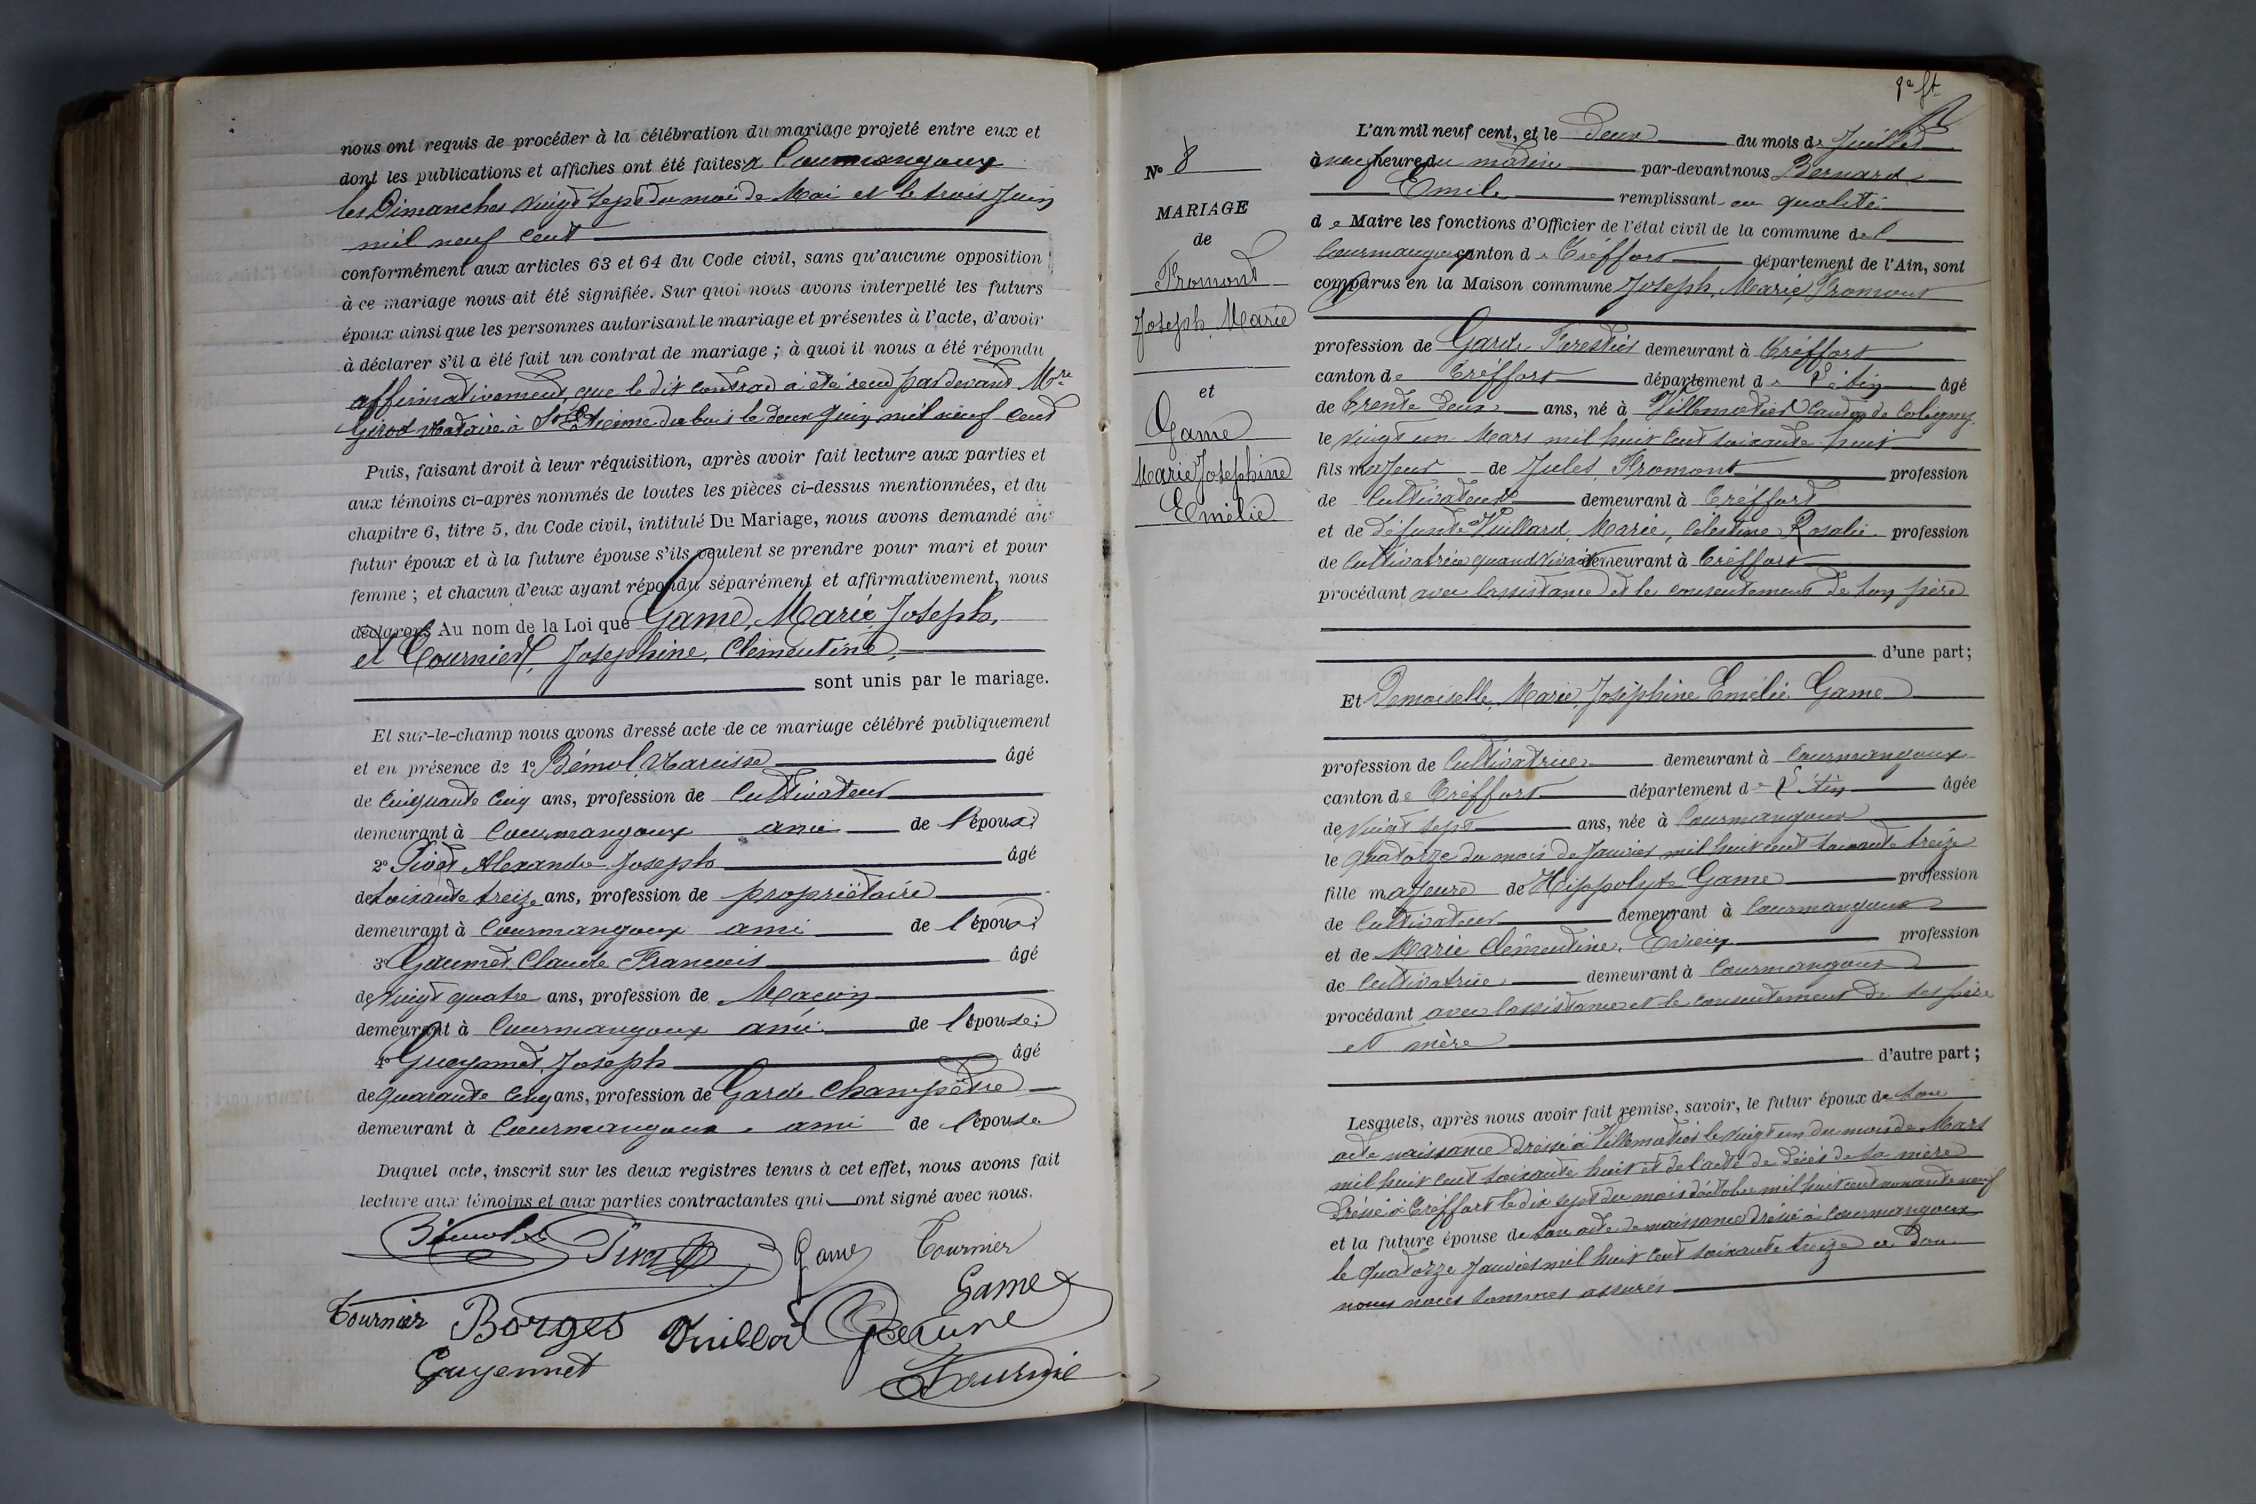 nous ont requis de procéder à la célébration du mariage projeté entre eux et
dont les publications et affiches ont été faites à Courmangoux
les Dimanches vingt sept du mois de Mai et le trois Juin
mil neuf cent
conformément aux articles 63 et 64 du Code civil, sans qu'aucune opposition
à ce mariage nous ait été signifiée. Sur quoi nous avons interpellé les futurs
époux ainsi que les personnes autorisant le mariage et présentes à l'acte, d'avoir
à déclarer s'il a été fait un contrat de mariage ; à quoi il nous a été répondu
affirmativement, que le dit contrat a été reçu par devant Mre
Girod Notaire à St Etienne du bois le deux Juin mil neuf cent
Puis, faisant droit à leur réquisition, après avoir fait lecture aux parties et
aux témoins ci-après nommés de toutes les pièces ci-dessus mentionnées, et du
chapitre 6, titre 5, du Code civil, intitulé Du Mariage, nous avons demandé au
futur époux et à la future épouse s'ils veulent se prendre pour mari et pour
femme ; et chacun d'eux ayant répondu séparément et affirmativement, nous
déclarons Au nom de la Loi que Game, Marie Joseph,
et Tournier, Josephine, Clémentine,
sont unis par le mariage.
Et sur-le-champ nous avons dressé acte de ce mariage célébré publiquement
et en présence de 1° Bémol Narcisse âgé
de Cinquante Cinq ans, profession de Cultivateur
demeurant à Courmangoux ami de l'époux;
2° Pivet Alexandre Joseph âgé
de soixante treize ans, profession de propriétaire
demeurant à Courmangoux ami de l'époux;
3° Gaumet Claude François âgé
de vingt quatre ans, profession de Maçon
demeurant à Courmangoux ami de l'épouse;
4° Guyennet, Joseph âgé
de quarante Cinq ans, profession de Garde Champêtre
demeurant à Courmangoux ami de l'épouse
Duquel acte, inscrit sur les deux registres tenus à cet effet, nous avons fait
lecture aux témoins et aux parties contractantes qui ont signé avec nous.
Bémol Pivet Game Tournier
Tournier Borges Vuillod Game
Guyennet
N° 8
MARIAGE
de
Fromont
Joseph Marie
et
Game
Marie Josephine
Emélie
L'an mil neuf cent, et le Deux du mois de Juillet
à neuf heure du matin par-devant nous Bernard
Emile remplissant en qualité
de Maire les fonctions d'Officier de l'état civil de la commune de
Courmangoux canton de Tréffort département de l'Ain, sont
comparus en la Maison commune Joseph, Marie, Fromont
profession de Garde Forestier demeurant à Tréffort
canton de Tréffort département de l'Ain âgé
de trente deux ans, né à Villemotier Canton de Coligny
le vingt un Mars mil huit cent soixante huit
fils majeur de Jules Fromont profession
de Cultivateur demeurant à Tréffort
et de défunte Vuillard, Marie, Célestine Rosalie profession
de Cultivatrice quand vivait demeurant à Tréffort
procédant avec l'assistance et le consentement de son père
d'une part;
Et Demoiselle, Marie, Joséphine Emélie Game
profession de Cultivatrice demeurant à Courmangoux
canton de Tréffort département de l'Ain âgée
de vingt sept ans, née à Courmangoux
le quatorze du mois de Janvier mil huit cent soixante treize
fille majeure de Hippolyte Game profession
de Cultivateur demeurant à Courmangoux
et de Marie Clémentine, profession
de Cultivatrice demeurant à Courmangoux
procédant avec l'assistance et le consentement de ses père
et mère
d'autre part;
Lesquels, après nous avoir fait remise, savoir, le futur époux de son
acte naissance Dressé à Villemotier le vingt un du mois de Mars
mil huit cent soixante huit et de l'acte de décès de sa mère
Dressé à Tréffort le dix sept du mois d'octobre mil huit cent nonante neuf
et la future épouse de son acte de naissance Dressé à Courmangoux
le quatorze Janvier mil huit cent soixante treize ce dont
nous nous sommes assurés